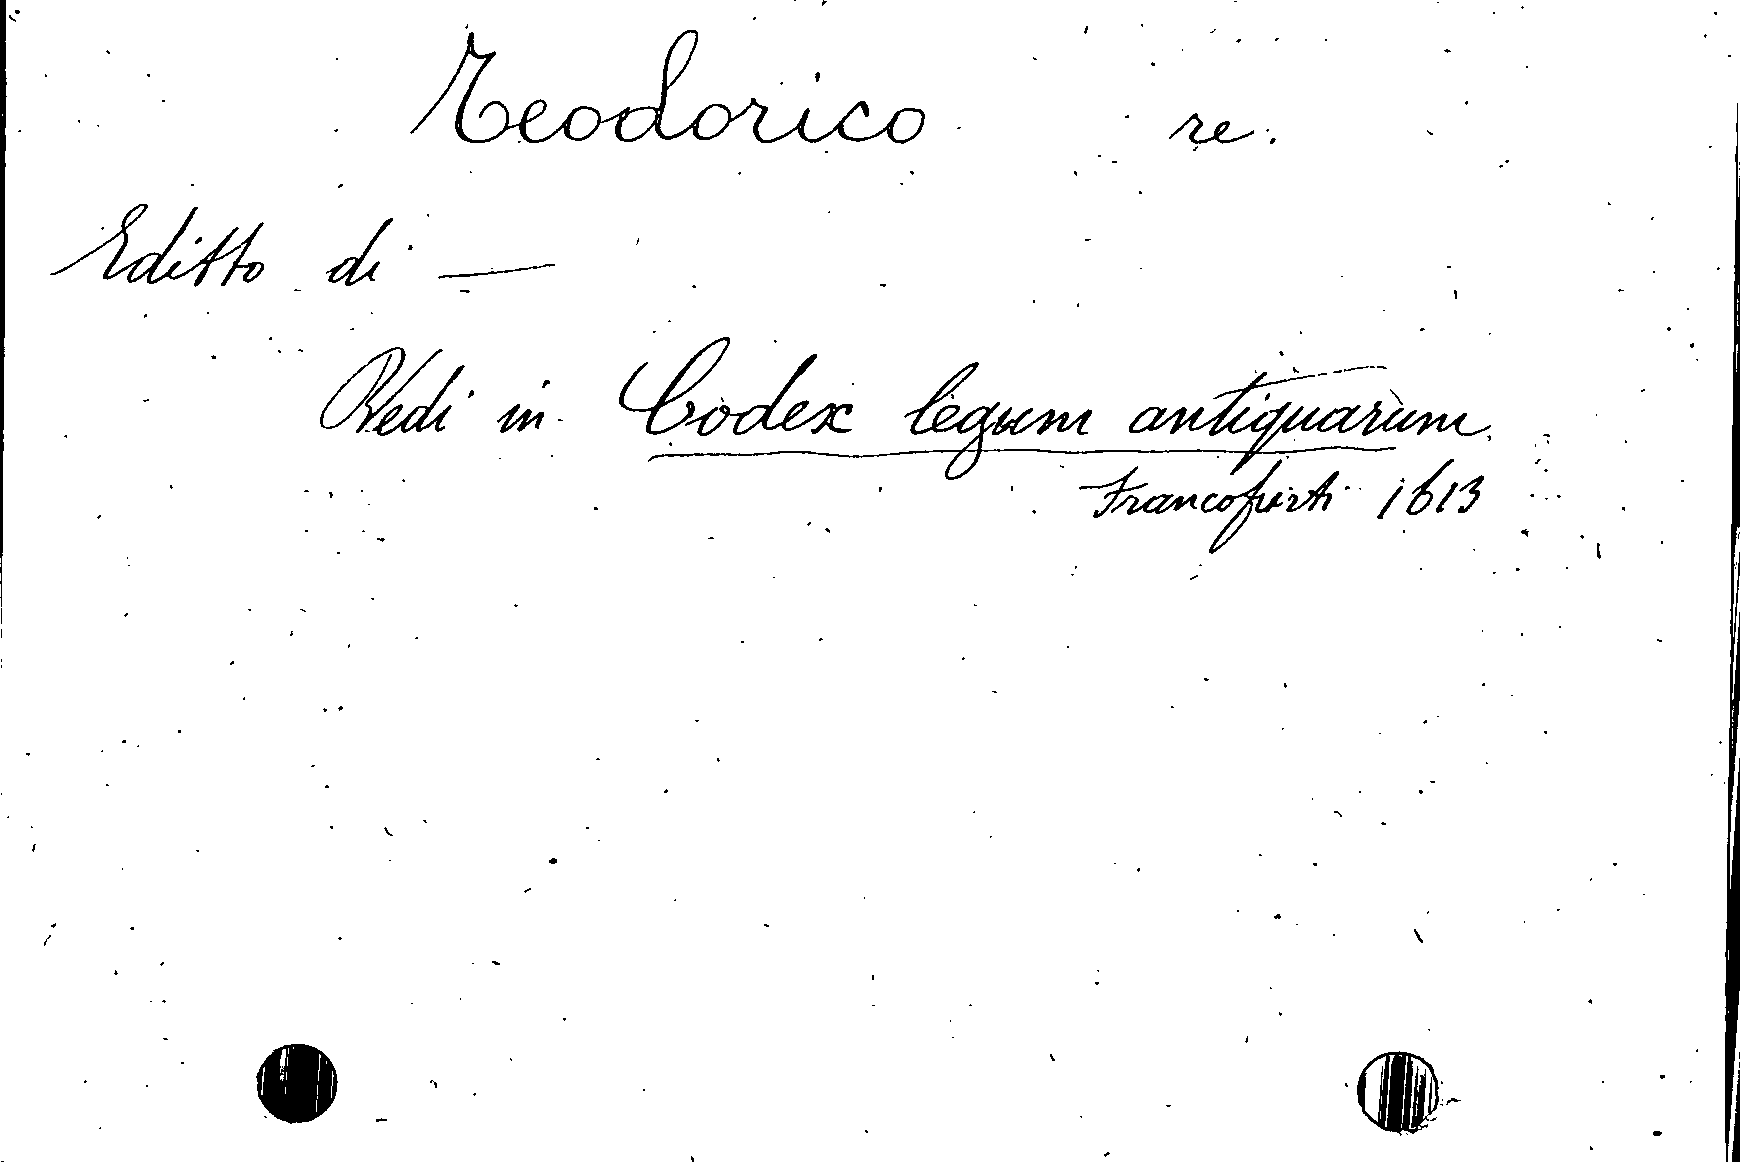 Teodorico re.
Editto di —
Vedi in Codex legum antiquarum
Francofurti 1613